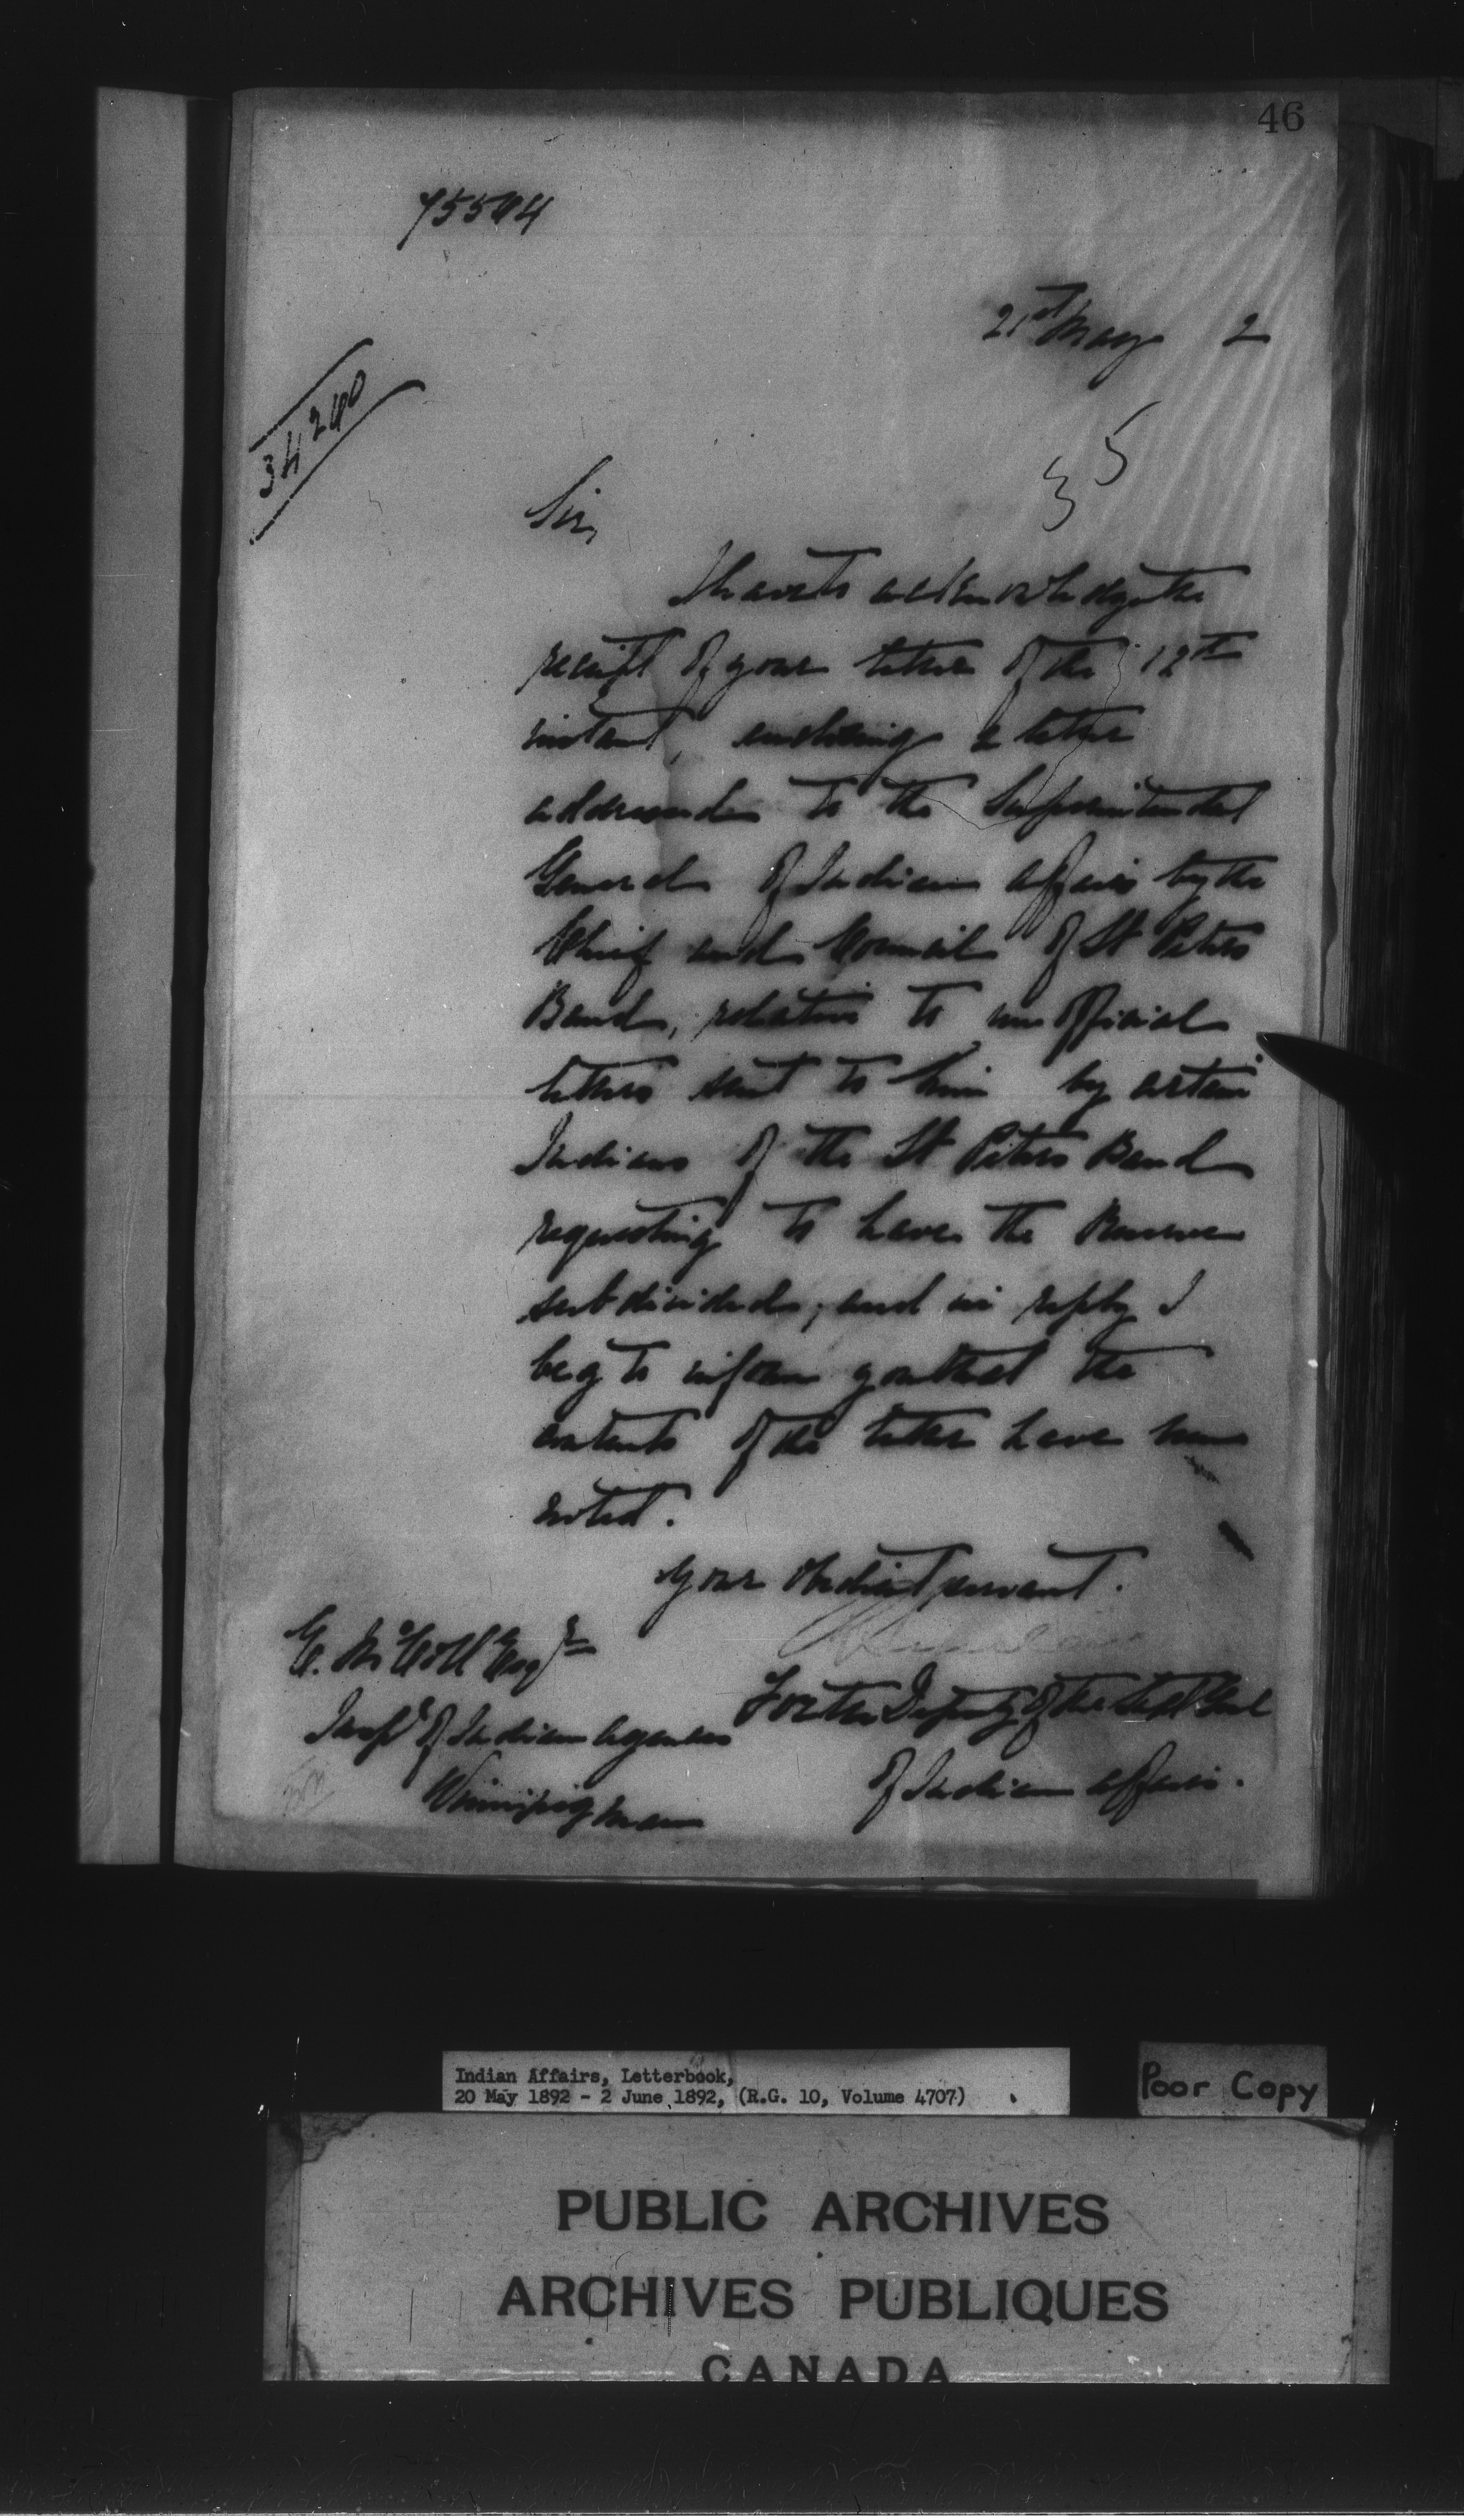 46
75504
21st May 2
34240
35
Sir,
I have to acknowledge the
receipt of your letter of the 12th
instant, enclosing a letter
addressed to the Superintendent
General of Indian Affairs by the
Chief and Council of St Peters
Band, relative to unofficial
letters sent to him by certain
Indians of the St Peters Band
requesting to have the Reserve
subdivided, and in reply I
beg to inform you that the
contents of the letter have been
noted.
Your obedient servant.
E. McColl Esqre
Inspr of Indian Agencies
Winnipeg Man
For the Deputy of the Supt Genl
of Indian Affairs.
Indian Affairs, Letterbook,
20 May 1892 - 2 June 1892, (R.G. 10, Volume 4707)
Poor Copy
PUBLIC ARCHIVES
ARCHIVES PUBLIQUES
CANADA